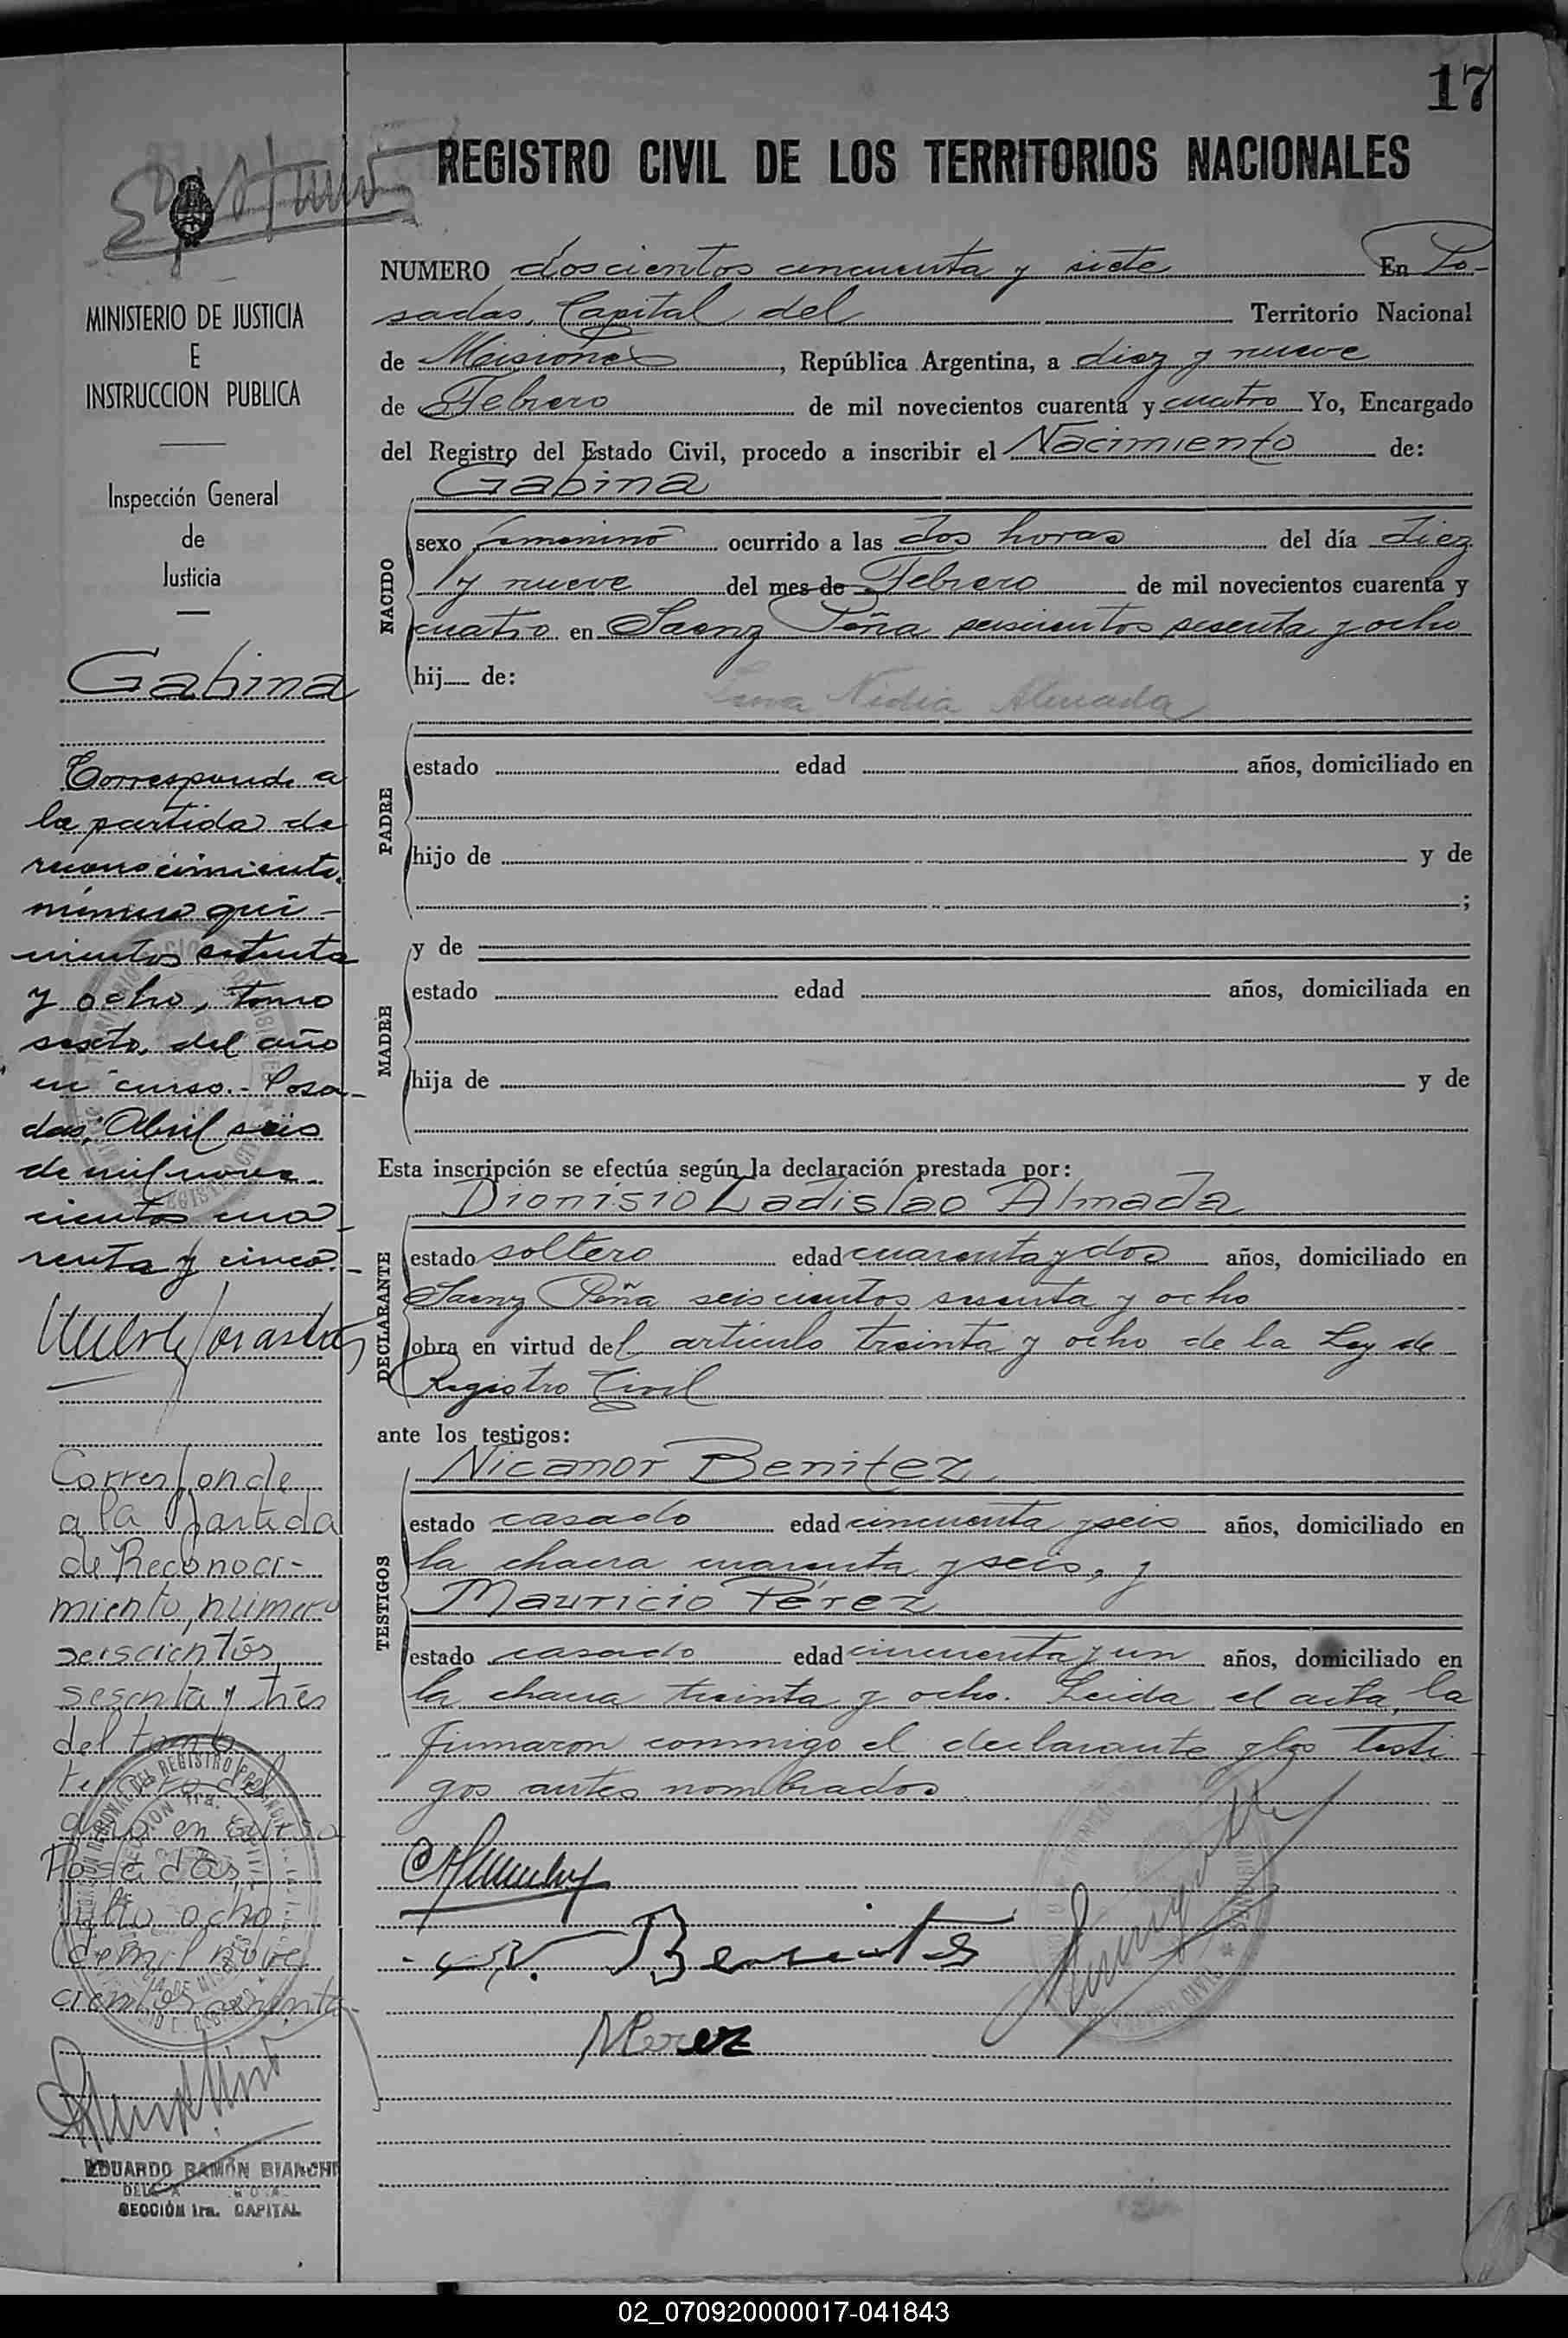 17
REGISTRO CIVIL DE LOS TERRITORIOS NACIONALES
MINISTERIO DE JUSTICIA
E
INSTRUCCION PUBLICA
Inspección General
de
Justicia
Gabina
Corresponde a
la partida de
reconocimiento
número qui-
nientos setenta
y ocho, tomo
sexto, del año
en curso.- Posa-
das, Abril seis
de mil nove-
cientos cua-
renta y cinco.-
Corresponde
a la Partida
de Reconoci-
miento, número
seiscientos
sesenta y tres
del tomo
año en curso
Posadas,
Julio ocho
de mil nove
cientos
EDUARDO RAMÓN BIANCHI
SECCIÓN 1ra. CAPITAL
NUMERO doscientos cincuenta y siete En Po-
sadas, Capital del Territorio Nacional
de Misiones, República Argentina, a diez y nueve
de Febrero de mil novecientos cuarenta y cuatro Yo, Encargado
del Registro del Estado Civil, procedo a inscribir el Nacimiento de:
Gabina
NACIDO
sexo femenino ocurrido a las dos horas del día diez
y nueve del mes de Febrero de mil novecientos cuarenta y
cuatro en Saenz Peña seiscientos sesenta y ocho
hij de:
Nidia Almada
PADRE
estado edad años, domiciliado en
hijo de y de
;
y de
MADRE
estado edad años, domiciliada en
hija de y de
Esta inscripción se efectúa según la declaración prestada por:
Dionisio Ladislao Almada
DECLARANTE
estado soltero edad cuarenta y dos años, domiciliado en
Saenz Peña seiscientos sesenta y ocho
obra en virtud del artículo treinta y ocho de la Ley de
Registro Civil
ante los testigos:
Nicanor Benitez
TESTIGOS
estado casado edad cincuenta y seis años, domiciliado en
la chacra cuarenta y seis, y
Mauricio Pérez
estado casado edad cincuenta y un años, domiciliado en
la chacra treinta y ocho. Leida el acta, la
firmaron conmigo el declarante y los testi-
gos antes nombrados
N. Benites
MPerez
02_070920000017-041843